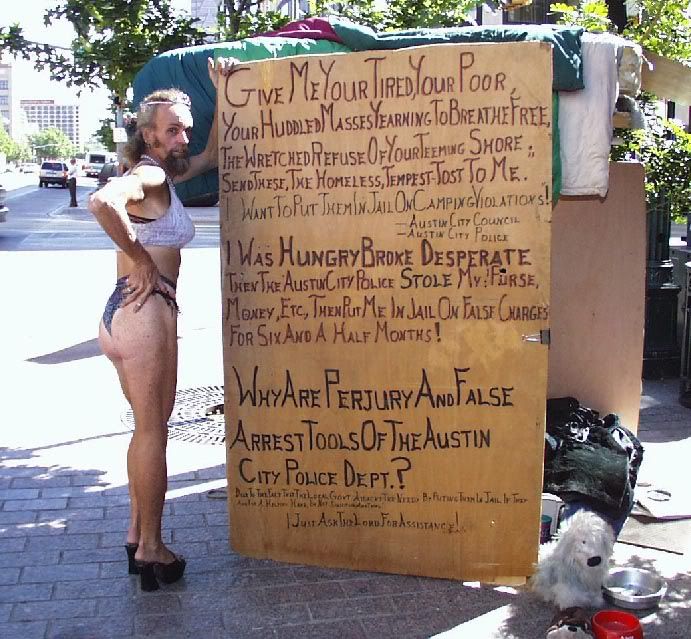 Give Me Your Tired, Your Poor,
Your Huddled Masses Yearning To Breathe Free,
The Wretched Refuse Of Your Teeming Shore;
Send These, The Homeless, Tempest-Tost To Me.
I Want To Put Them In Jail On Camping Violations!
- Austin City Council
- Austin City Police
I Was Hungry Broke Desperate
Then The Austin City Police Stole My: Purse,
Money, Etc, Then Put Me In Jail On False Charges
For Six And A Half Months!
Why Are Perjury And False
Arrest Tools Of The Austin
City Police Dept.?
Due To The Fact That The Local Gov't Attacks The Needy By Putting Them In Jail If They
A Helping Hand
I Just Ask The Lord For Assistance!